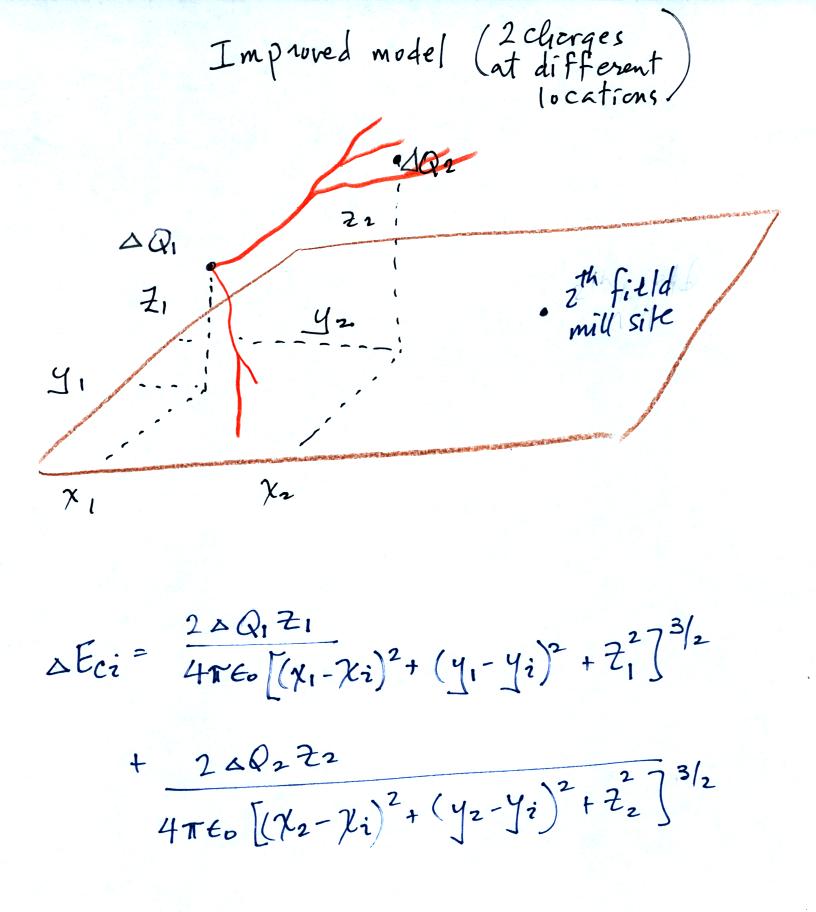 Improved model (2 charges
at different
locations)
ΔQ₂
Z₂
ΔQ₁
Z₁
2th field
mill site
y₂
y₁
x₁
x₂
ΔE_ci = 2ΔQ₁Z₁ / 4πϵ₀[(x₁-x_i)² + (y₁-y_i)² + Z₁²]^3/2
+ 2ΔQ₂Z₂ / 4πϵ₀[(x₂-x_i)² + (y₂-y_i)² + Z₂²]^3/2